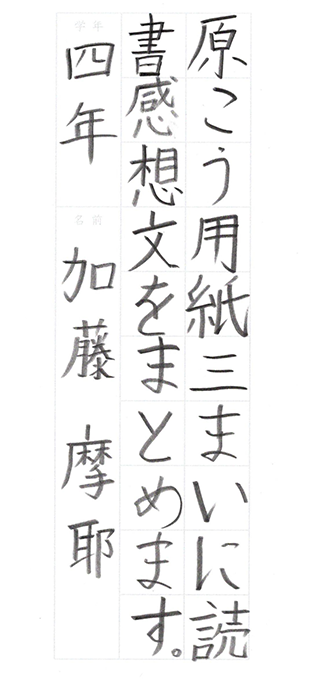 原こう用紙三まいに読
書感想文をまとめます。
学年
四年
名前
加藤 摩耶